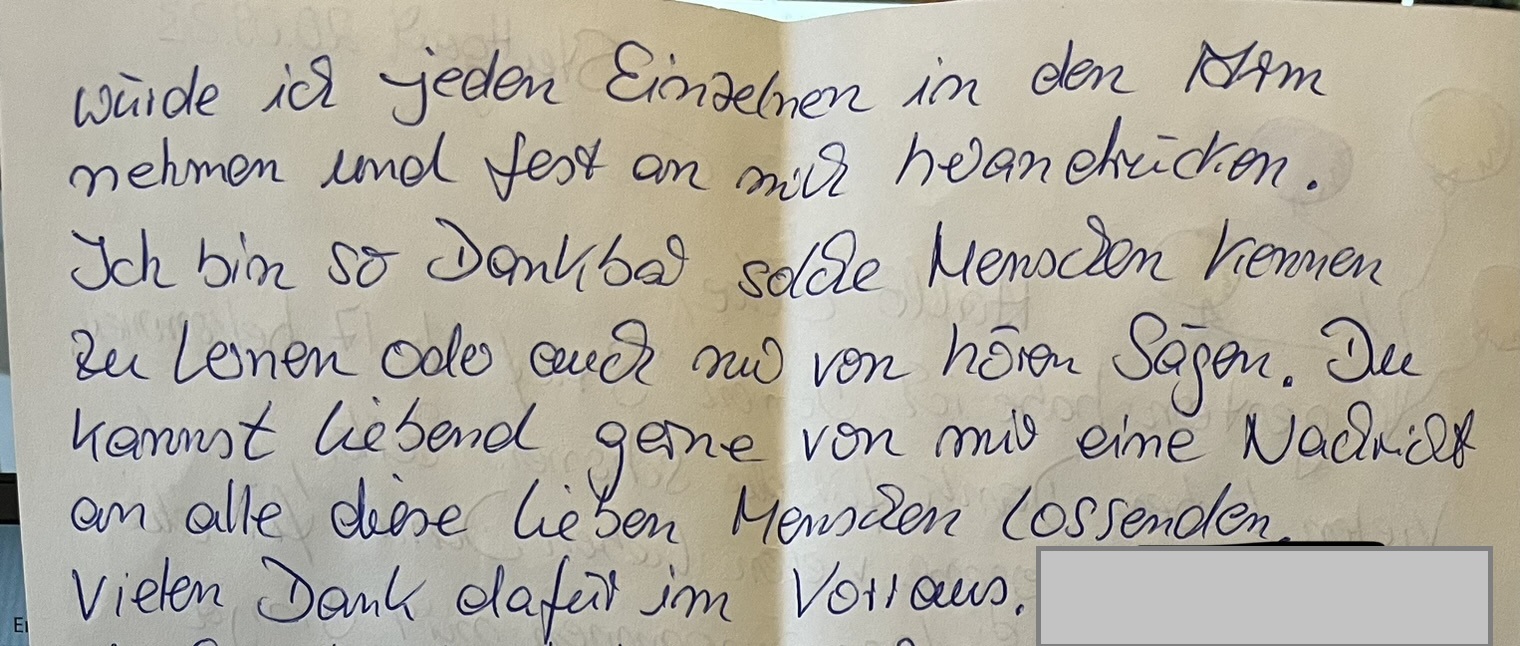 würde ich jeden Einzelnen in den Arm
nehmen und fest an mich herandrücken.
Ich bin so Dankbar solche Menschen kennen
zu lernen oder auch nur von hören Sagen. Du
kannst liebend gerne von mir eine Nachricht
an alle diese lieben Menschen lossenden.
Vielen Dank dafür im Vorraus.